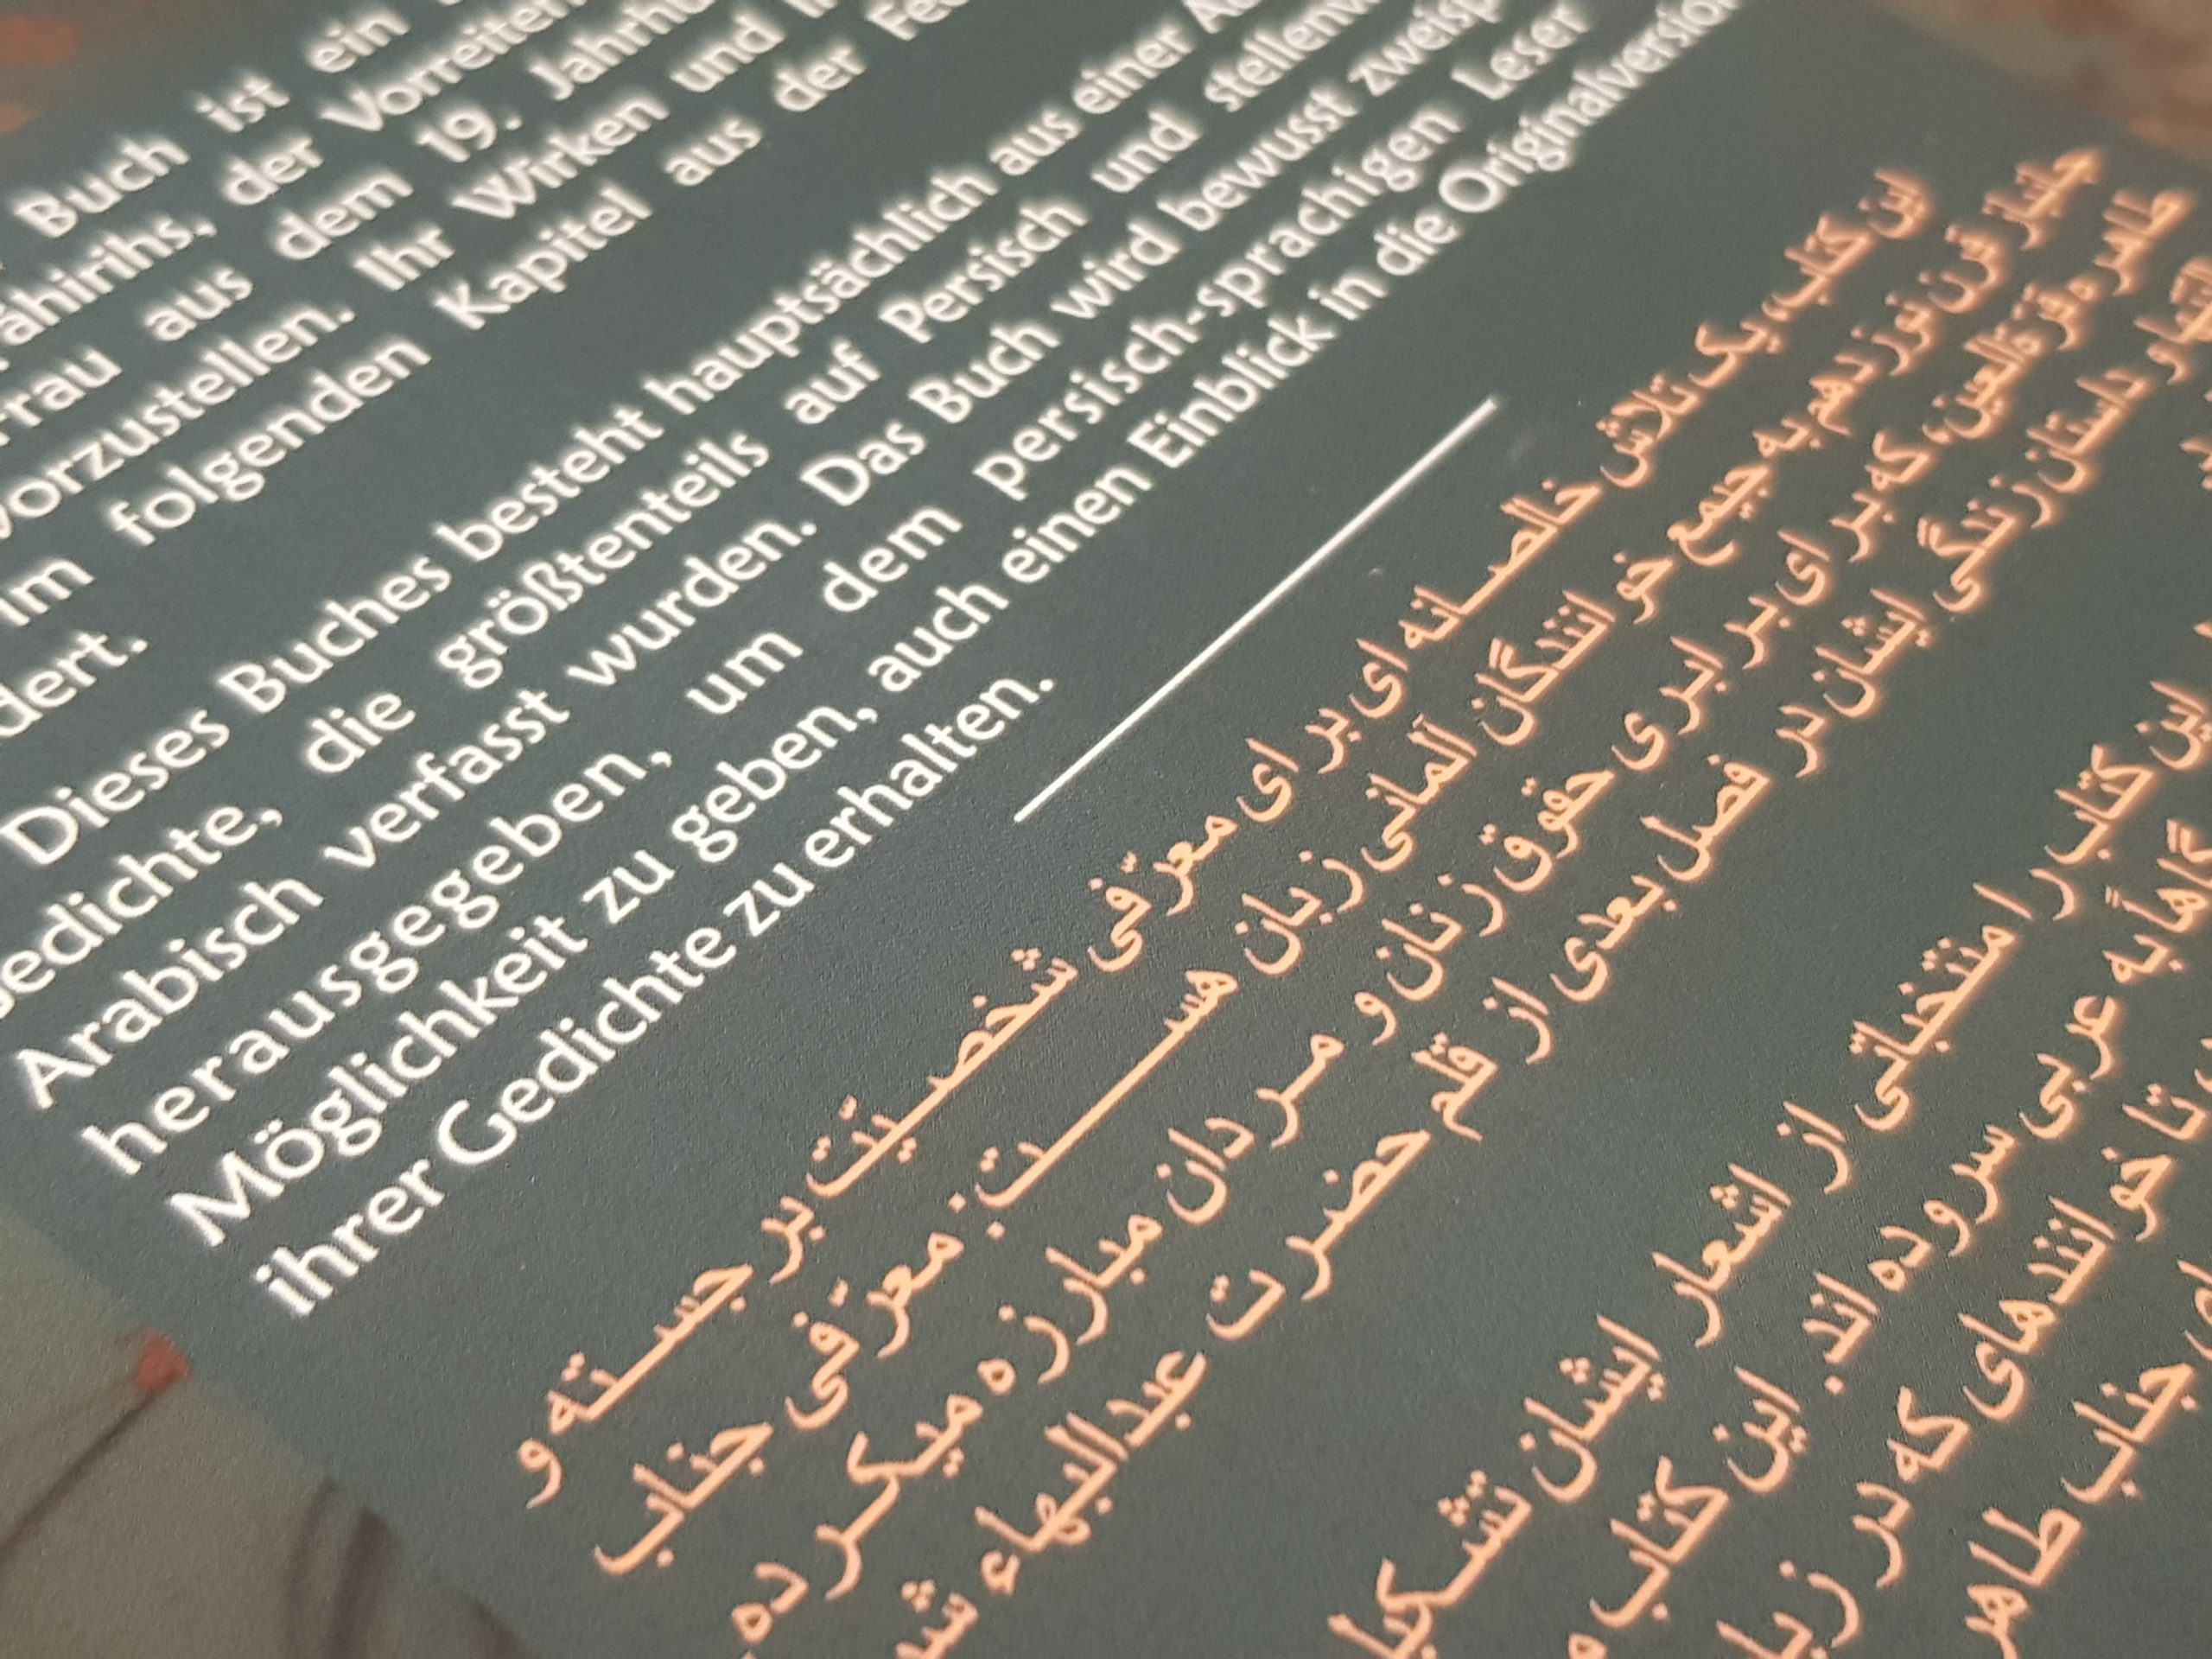 Buch ist ein
ahirihs, der Vorreiterin
Frau aus dem 19. Jahrhu
vorzustellen. Ihr Wirken und
im folgenden Kapitel aus der Fed
dert.
Dieses Buches besteht hauptsächlich aus einer Au
Gedichte, die größtenteils auf Persisch und stellenw
Arabisch verfasst wurden. Das Buch wird bewusst zweisp
herausgegeben, um dem persisch-sprachigen Leser
Möglichkeit zu geben, auch einen Einblick in die Originalversion
ihrer Gedichte zu erhalten.
این کتاب یک تلاش خالصانه ای برای معرّفی شخصیّت برجسته و
جانباز قرن نوزدهم به جمیع خوانندگان آلمانی زبان هست: معرّفی جناب
طاهره قرةالعین، که برای برابری حقوق زنان و مردان مبارزه میکرده
داستان زندگی ایشان در فصل بعدی از قلم حضرت عبدالبهاء
این کتاب را منتخباتی از اشعار ایشان تشکیل
گاهاً به عربی سروده اند. این کتاب
تا خوانندهای که در زبان
جناب طاهر